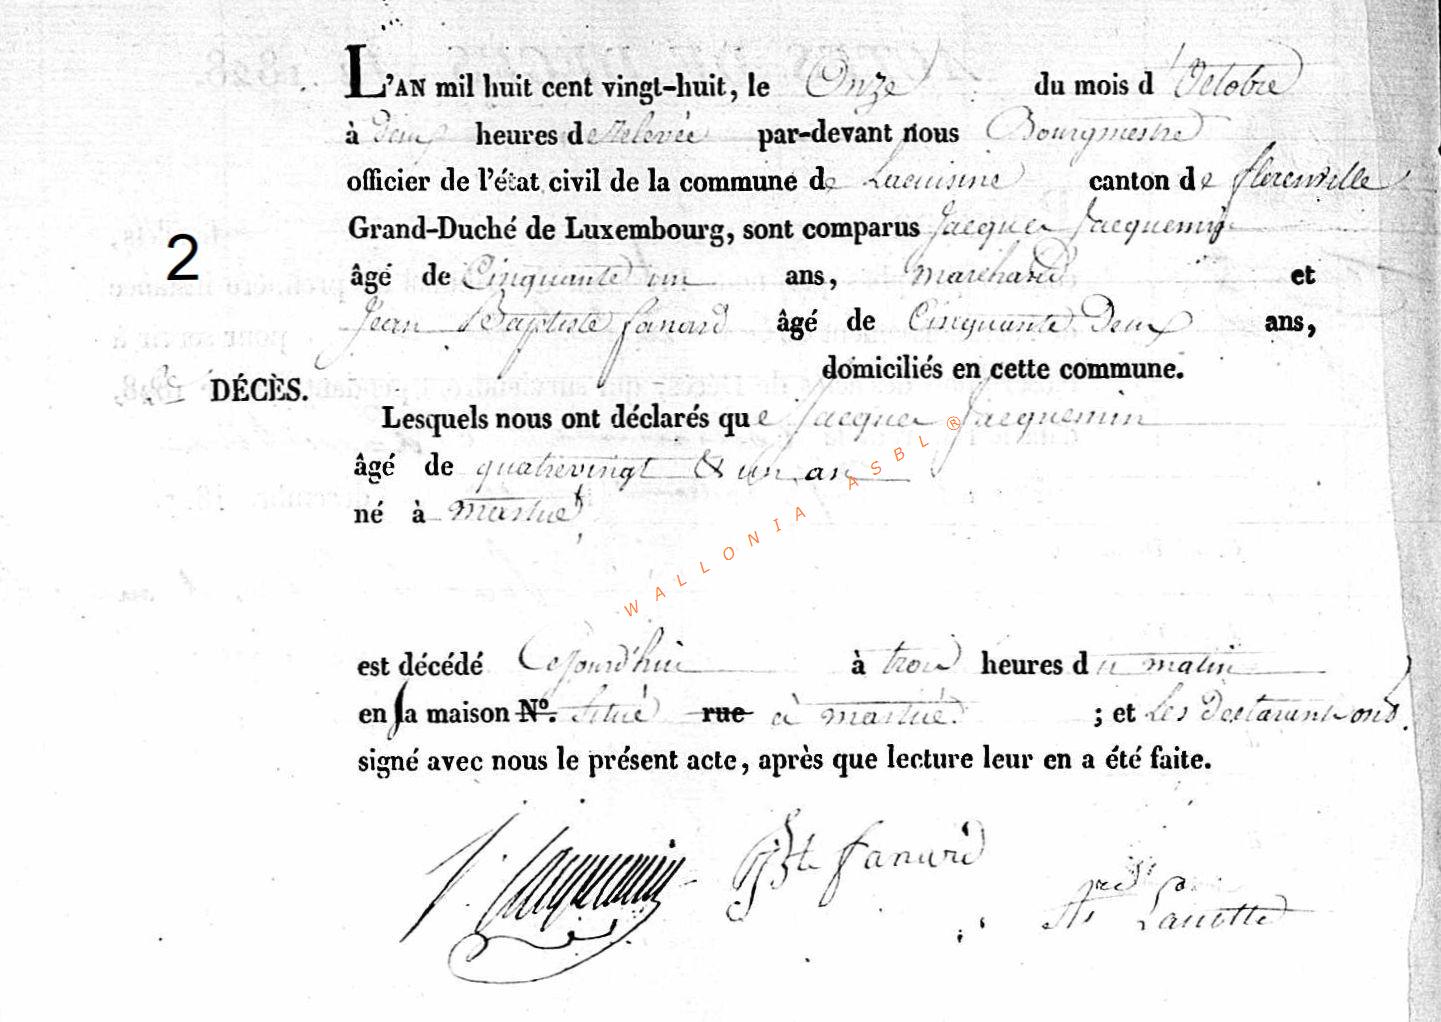 L'AN mil huit cent vingt-huit, le Onze du mois d'Octobre
à deux heures de Relevée par-devant nous Bourgmestre
officier de l'état civil de la commune de Lacuisine canton de florenville
Grand-Duché de Luxembourg, sont comparus Jacques Jacquemin
âgé de Cinquante un ans, marchand et
Jean Baptiste fanard âgé de Cinquante Deux ans,
domiciliés en cette commune.
2
DÉCÈS.
Lesquels nous ont déclarés que Jacques Jacquemin
âgé de quatrevingt & un an
né à martué
WALLONIA ASBL ®
est décédé Cejourd'hui à trois heures du matin
en sa maison N°. situé rue à martué ; et Les Declarants ond
signé avec nous le présent acte, après que lecture leur en a été faite.
J. Jacquemin JBte fanard
Lanotte